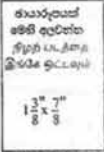 ඡායාරූපයක්
මෙහි අලවන්න
நிழற் படத்தை
இங்கே ஒட்டவும்
1 3/8" x 7/8"